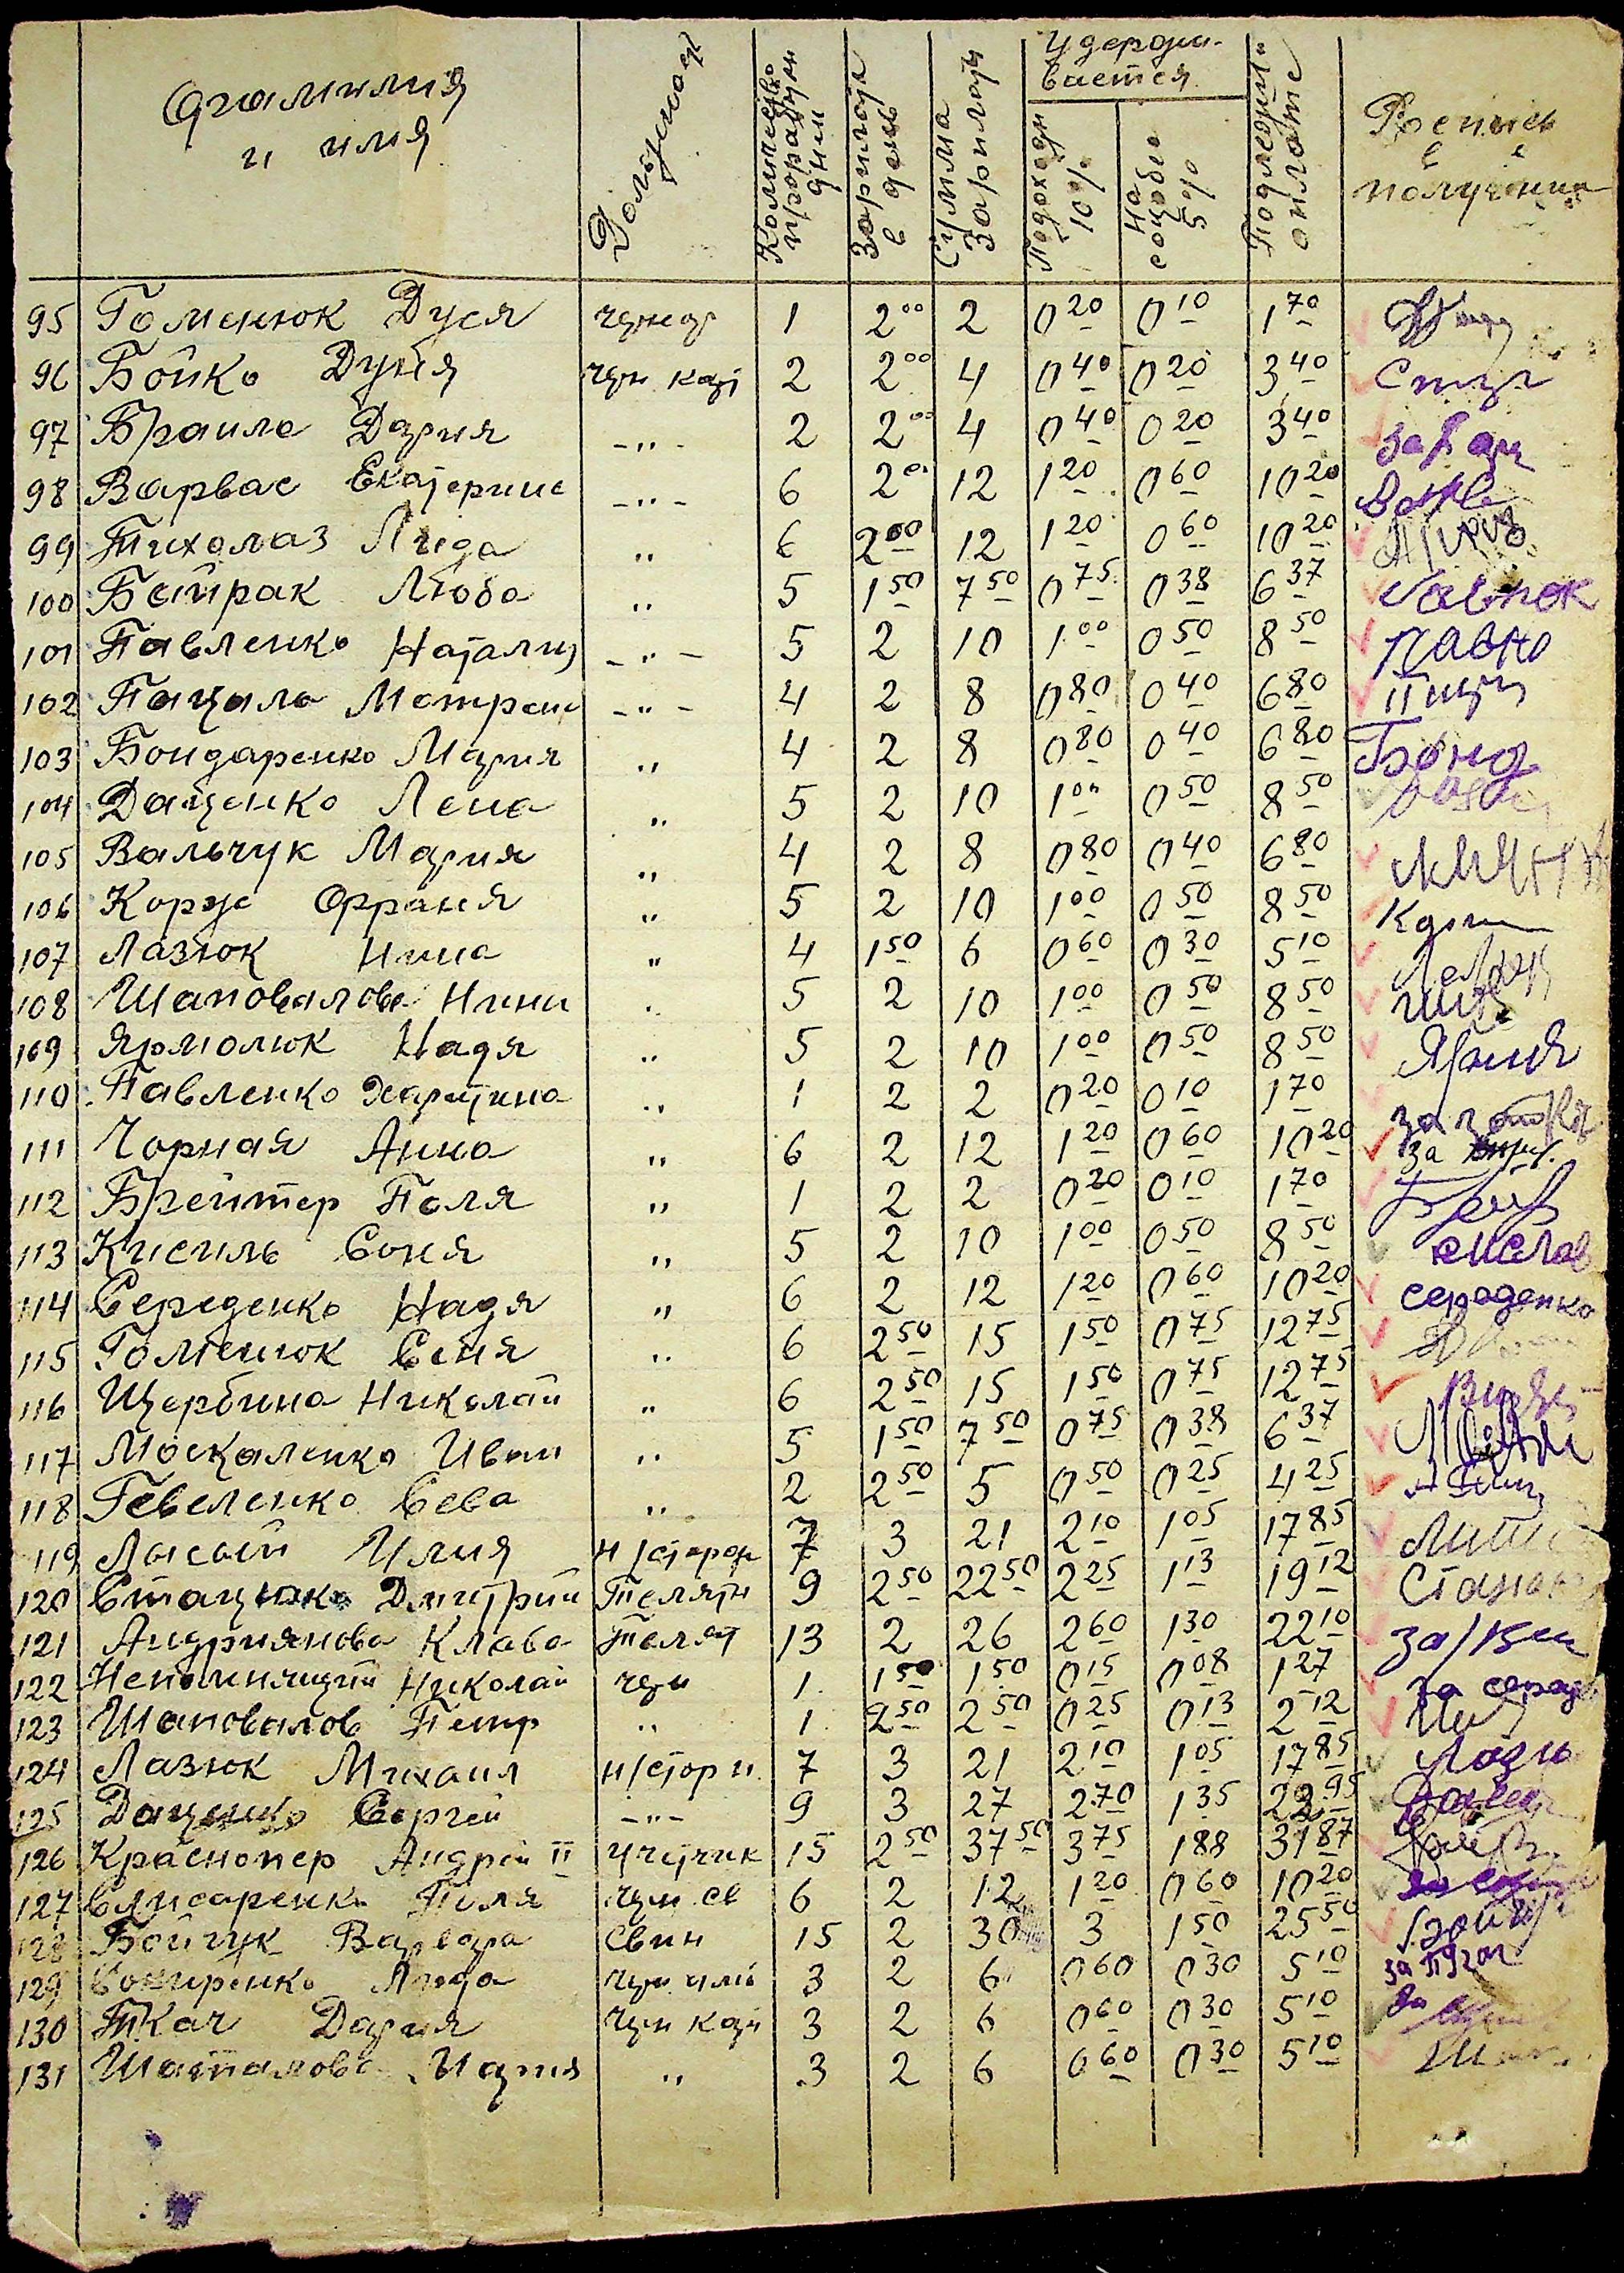 Фамилия и имя Должность Количество проработ. дни Зарплата в день Сумма зарплаты Удержи-вается Подоходн 10% На соцобес 5% Подлежит оплате Роспись в получении
95 Гоменюк Дуся 1 2 00 2 0 20 0 10 1 70
96 Бойко Дуня чрн каз 2 2 00 4 0 40 0 20 3 40
97 Браило Дария -"- 2 2 00 4 0 40 0 20 3 40
98 Варвас Екатерине -"- 6 2 00 12 1 20 0 60 10 20
99 Тихолаз Ліда " 6 2 00 12 1 20 0 60 10 20
100 Байрак Люба " 5 1 50 7 50 0 75 0 38 6 37
101 Павленко Наталия -"- 5 2 10 1 00 0 50 8 50 Павно
102 Пацало Мотрена -"- 4 2 8 0 80 0 40 6 80
103 Бондаренко Мария " 4 2 8 0 80 0 40 6 80 Бонд
104 Даценко Лена " 5 2 10 1 00 0 50 8 50
105 Вальчук Мария " 4 2 8 0 80 0 40 6 80
106 Корж Фрраня " 5 2 10 1 00 0 50 8 50
107 Лазюк Нина " 4 1 50 6 0 60 0 30 5 10
108 Шаповалова Нина " 5 2 10 1 00 0 50 8 50
109 Ярмолюк Надя " 5 2 10 1 00 0 50 8 50
110 Павленко Харитина " 1 2 2 0 20 0 10 1 70
111 Чорная Анна " 6 2 12 1 20 0 60 10 20 за
112 Брейтер Поля " 1 2 2 0 20 0 10 1 70
113 Кисиль Соня " 5 2 10 1 00 0 50 8 50
114 Середенко Надя " 6 2 12 1 20 0 60 10 20 середенко
115 Гоменюк Сеня " 6 2 50 15 1 50 0 75 12 75
116 Щербина Николай " 6 2 50 15 1 50 0 75 12 75
117 Москаленко Иван " 5 1 50 7 50 0 75 0 38 6 37
118 Гевеленко Сева " 2 2 50 5 0 50 0 25 4 25
119 Лысый Илия н/сторож 7 3 21 2 10 1 05 17 85
120 Стаценко Дмитрий Телятн 9 2 50 22 50 2 25 1 13 19 12
121 Андриянова Клава Телят 13 2 26 2 60 1 30 22 10
122 Непомнящий Николай чрн 1 1 50 1 50 0 15 0 08 1 27 за
123 Шаповалов Петр " 1 2 50 2 50 0 25 0 13 2 12
124 Лазюк Михаил н/сторн 7 3 21 2 10 1 05 17 85
125 Даценко Сергей -"- 9 3 27 2 70 1 35 22 95
126 Краснопер Андрей II Учетчик 15 2 50 37 50 3 75 1 88 31 87
127 Слисаренко Поля чрн. св 6 2 12 1 20 0 60 10 20
128 Бойчук Варвара Свин 15 2 30 3 1 50 25 50
129 Сокиренко Лида 3 2 6 0 60 0 30 5 10 за
130 Ткач Дария чрн каз 3 2 6 0 60 0 30 5 10 За
131 Шаталова Мария " 3 2 6 0 60 0 30 5 10